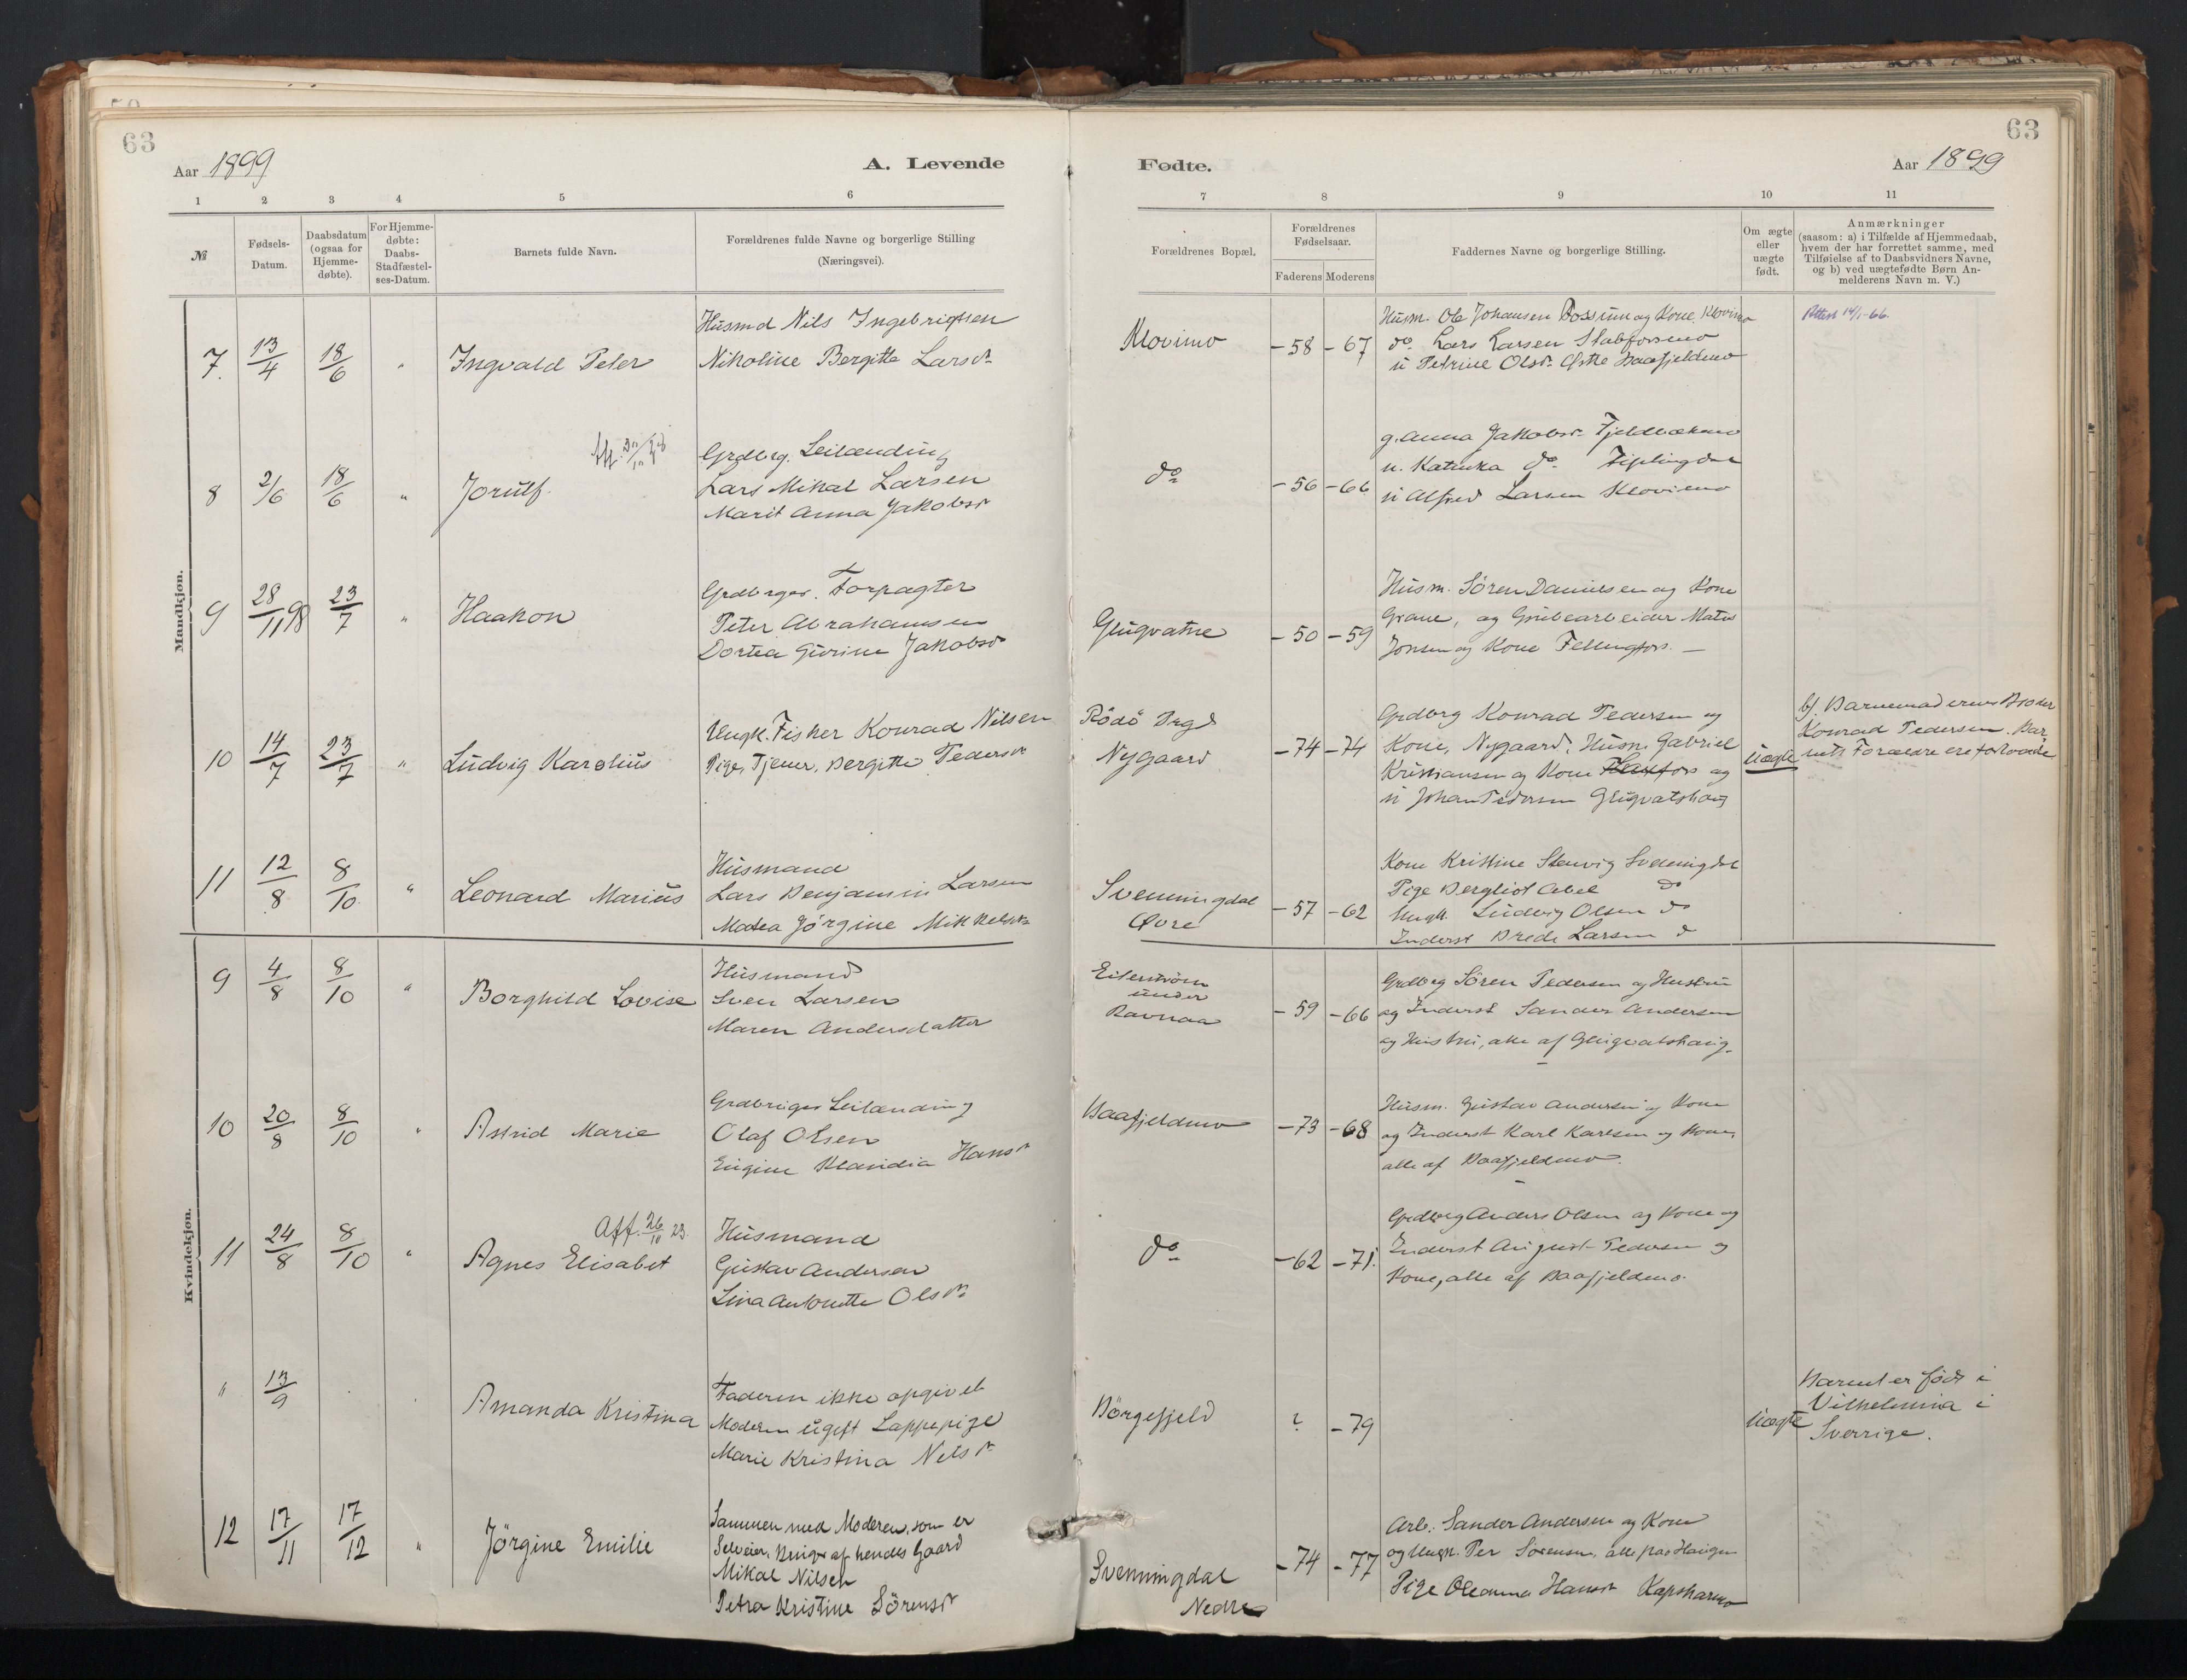 63
Aar 1899
A. Levende
1 2 3 4 5 6
№
Fødsels-
Datum.
Daabsdatum
(ogsaa for
Hjemme-
døbte).
For Hjemme-
døbte:
Daabs-
Stadfæstel-
ses-Datum.
Barnets fulde Navn.
Forældrenes fulde Navne og borgerlige Stilling
(Næringsvei).
Mandkjøn.
7. 13/4 18/6 " Ingvald Peter
Husmd Nils Ingebrigtsen
Nikoline Bergitte Larsdr
8 2/6 18/6 " Jorulf.
Grdbrg. Leilænding
Lars Mikal Larsen
Marit Anna Jakobsdr
9 28/11 98 23/7 " Haakon
Grdbrger. Forpagter
Peter Abrahamsen
Dortea Gurine Jakobsdr
10 14/7 23/7 " Ludvig Karolius
Ungk. Fisker Konrad Nilsen
Pige, Tjener, Bergitte Pedersdr
11 12/8 8/10 " Leonard Marius
Husmand
Lars Benjamin Larsen
Matea Jørgine Mikkelsdr
9 4/8 8/10 " Borghild Lovise
Husmand
Sven Larsen
Maren Andersdatter
Kvindekjøn.
10 20/8 8/10 " Astrid Marie
Grdbruger Leilænding
Olaf Olsen
Eugine Klaudia Hansdr
Aff. 26/10 23.
11 24/8 8/10 " Agnes Elisabet
Husmand
Gustav Andersen
Lina Antonette Olsdr
" 13/9 Amanda Kristina
Faderen ikke opgivet
Moderen ugift Lappepige
Marie Kristina Nelsdr
12 17/11 17/12 " Jørgine Emilie
Sammen med Moderen, som er
Selveier, Bruger af hendes Gaard
Mikal Nilsen
Petra Kristine Sørensdr
63
Fødte.
Aar 1899
7 8 9 10 11
Forældrenes Bopæl.
Forældrenes
Fødselsaar.
Faderens Moderens
Faddernes Navne og borgerlige Stilling.
Om ægte
eller
uægte
født.
Anmærkninger
(saasom: a) i Tilfælde af Hjemmedaab,
hvem der har forrettet samme, med
Tilføielse af to Daabsvidners Navne,
og b) ved uægtefødte Børn An-
melderens Navn m. V.)
Klovimo -58 -67
Husm. Ole Johansen Fossum og Kone, Klovimo
do Lars Larsen Stabforsmo
u Petrine Olsdr Østre Baafjeldmo
Attest 14/1-66
do -56 -66
g. Anna Jakobsdr Fjeldbækmo
u. Katinka do
u Alfred Larsen Klovimo
Glugvatne -50 -59
Husm. Søren Danielsen og Kone
Grane, og Grubearbeider
Jonsen og Kone Fellingfors. —
Rødø Prgd
Nygaard -74 -74
Grdbrg Konrad Pedersen og
Kone, Nygaard, Husm. Gabriel
Kristiansen og Kone og
u Johan Pedersen Glugvatshaug
Uægte
b). Barnemoderens Broder
Konrad Pedersen. Bar-
nets Forældre ere forlovede
Svenningdal
Øvre -57 -62
Kone Kristine Stenvig Svenningdal
Pige Bergliot Abel do
Ungk. Ludvig Olsen do
Inderst Brede Larsen do
Eiterstrøm
under
Ravnaa -59 -66
Grdbrg Søren Pedersen og Hustru
og Inderst Sander Andersen
og Hustru, alle af Glugvatshaug.
Baafjeldmo -73 -68
Husm. Gustav Andersen og Kone
og Inderst Karl Karlsen og Kone,
alle af Baafjeldmo.
do -62 -71.
Grdbrg Anders Olsen og Kone og
Inderst August Pedersen og
Kone, alle af Baafjeldmo.
Børgefjeld ? -79
Uægte
Barnet er født i
Vilhelmina i
Sverrige.
Svenningdal
Nedre -74 -77
Arb. Sander Andersen og Kone
og Ungk. Per Sørensen, alle paa Haugen
Pige Oleanna Hansdr Kapskarmo